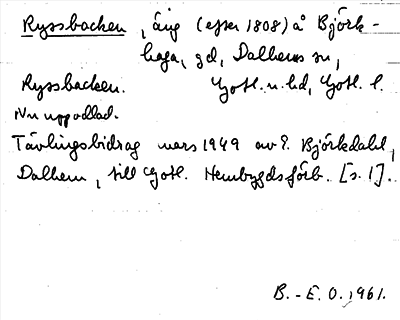 Ryssbacken, äng (efter 1808) å Björk-
haga, gd, Dalhems sn,
Ryssbacken. Gotl. n. hd, Gotl. l.
Nu uppodlad.
Tävlingsbidrag mars 1949 av E. Björkdahl,
Dalhem, till Gotl. Hembygdsförb. [s. 1].
B.-E. O. 1961.